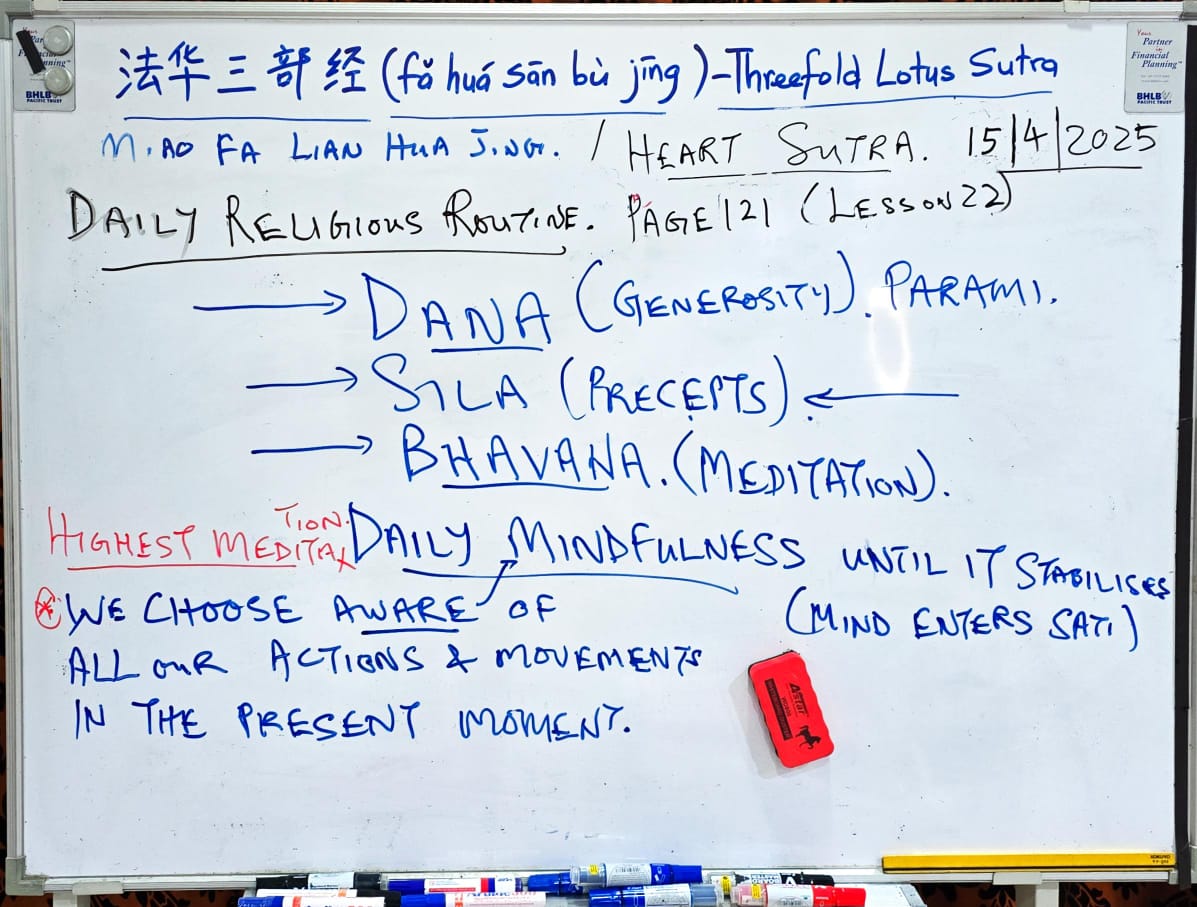 法华三部经 (fǎ huá sān bù jīng) - Threefold Lotus Sutra
MIAO FA LIAN HUA JING. / HEART SUTRA. 15/4/2025
DAILY RELIGIOUS ROUTINE. PAGE 121 (LESSON 22)
→ DANA (GENEROSITY). PARAMI.
→ SILA (PRECEPTS). ←
→ BHAVANA. (MEDITATION).
HIGHEST MEDITATION. DAILY MINDFULNESS UNTIL IT STABILISES
(MIND ENTERS SATI)
* WE CHOOSE AWARE OF
ALL OUR ACTIONS & MOVEMENTS
IN THE PRESENT MOMENT.
Your
Partner
in
Financial
Planning
BHLB
PACIFIC TRUST
BHLB
PACIFIC TRUST
Astar
KOKUYO